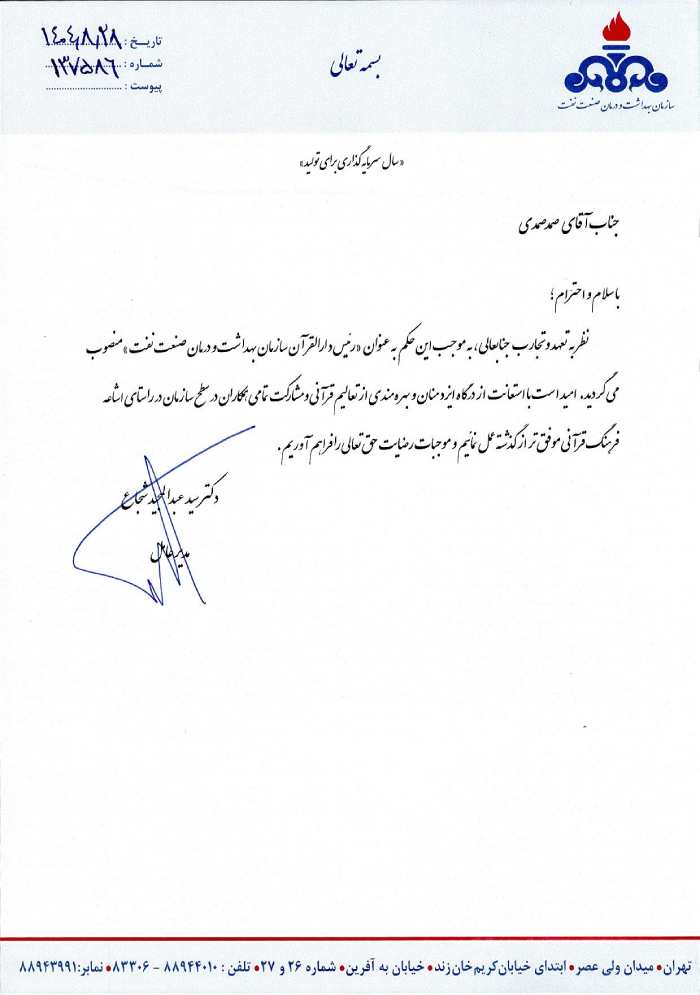 بسمه تعالی
تاریخ: ۱۴۰۴/۸/۲۸
شماره: ۱۳۷۵۸۶
پیوست:
سازمان بهداشت و درمان صنعت نفت
«سال سرمایه گذاری برای تولید»
جناب آقای صمد صمدی
با سلام و احترام؛
نظر به تعهد و تجارب جنابعالی، به موجب این حکم به عنوان «رئیس دارالقرآن سازمان بهداشت و درمان صنعت نفت» منصوب
می گردید. امید است با استعانت از درگاه ایزد منان و بهره مندی از تعالیم قرآنی و مشارکت تمامی همکاران در سطح سازمان در راستای اشاعه
فرهنگ قرآنی موفق تر از گذشته عمل نمائیم و موجبات رضایت حق تعالی را فراهم آوریم.
دکتر سید عبدالمجید شجاع
مدیرعامل
تهران • میدان ولی عصر • ابتدای خیابان کریم خان زند • خیابان به آفرین • شماره ۲۶ و ۲۷ • تلفن: ۸۸۹۴۴۰۱۰ - ۸۳۳۰۶ • نمابر: ۸۸۹۴۳۹۹۱